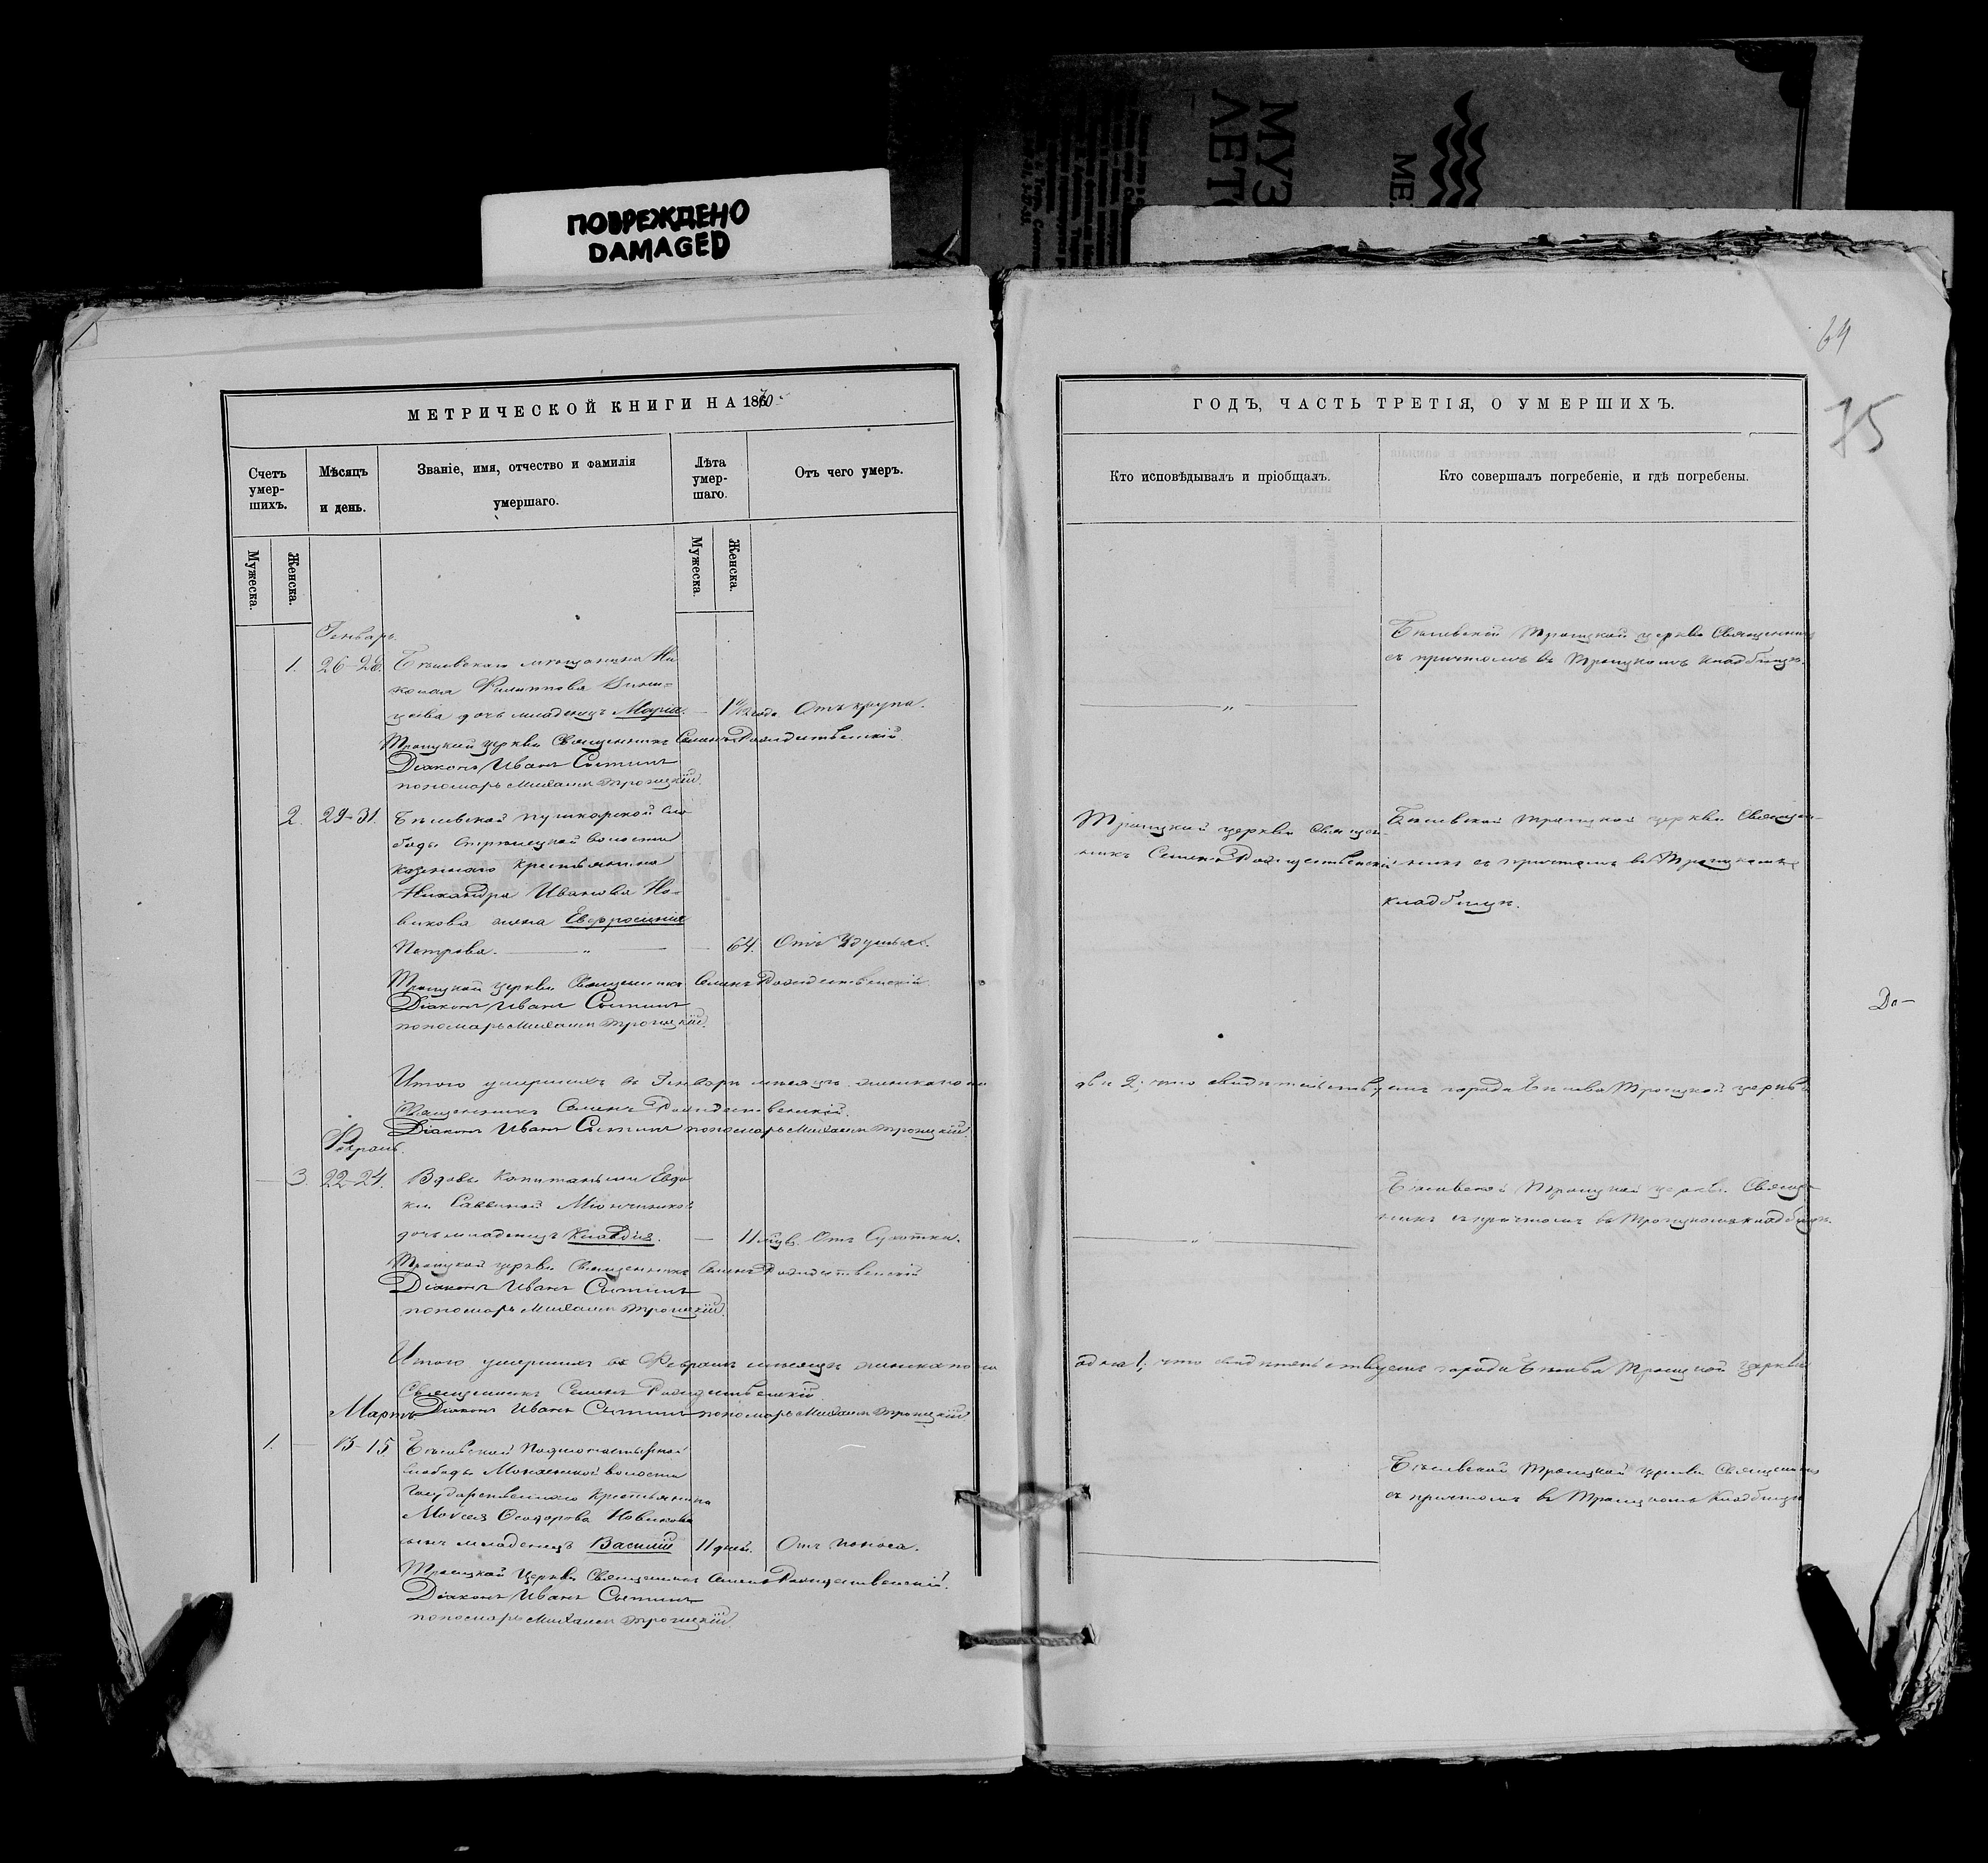 ПОВРЕЖДЕНО
DAMAGED
МУЗ
ЛЕТО
МЕ
64
75
МЕТРИЧЕСКОЙ КНИГИ НА 1870
Счетъ умер-шихъ.
Мѣсяцъ и день.
Званіе, имя, отчество и фамилія
умершаго.
Лѣта умер-шаго.
Отъ чего умеръ.
Мужеска.
Женска.
Мужеска.
Женска.
Генварь.
1. 26-28. Бѣлевскаго мѣщанина Ни
колая Филиппова
дочь младенецъ Марія. — 1 1/2 года Отъ крупа.
Троицкой церкви Священникъ Семенъ Рождественскій
Діаконъ Иванъ Сытинъ
пономарь Михаилъ Троицкій.
2. 29-31. Бѣлевской пушкарской сло
боды волости
казеннаго крестьянина
Никандра Иванова Но-
викова жена Евфросинія
Петрова. — " — — 64. Отъ Удушья.
Троицкой церкви Священникъ Семенъ Рождественскій.
Діаконъ Иванъ Сытинъ
пономарь Михаилъ Троицкій.
Итого умершихъ въ Генварѣ мѣсяцѣ женска пола
Священникъ Семенъ Рождественскій.
Діаконъ Иванъ Сытинъ пономарь Михаилъ Троицкій.
Февраль.
— 3. 22-24. Вдовы Капитанши Евдо
кіи Саввиной
дочь младенецъ Клавдія. — 11 мцв. Отъ Сухотки.
Троицкой церкви Священникъ Семенъ Рождественскій
Діаконъ Иванъ Сытинъ
пономарь Михаилъ Троицкій.
Итого умершихъ въ Февралѣ мѣсяцѣ женска пола
Священникъ Семенъ Рождественскій
Мартъ Діаконъ Иванъ Сытинъ пономарь Михаилъ Троицкій.
1. — 13-15. Бѣлевской Подмонастырной
слободы волости
Государственнаго Крестьянина
Моисея Ѳеодорова Новикова
сынъ младенецъ Василій 11 дней. Отъ поноса.
Троицкой Церкви Священникъ Семенъ Рождественскій.
Діаконъ Иванъ Сытинъ
пономарь Михаилъ Троицкій.
ГОДЪ, ЧАСТЬ ТРЕТІЯ, О УМЕРШИХЪ.
Кто исповѣдывалъ и пріобщалъ.
Кто совершалъ погребеніе, и гдѣ погребены.
Бѣлевской Троицкой церкви Священникъ
съ причтомъ въ Троицкомъ кладбищѣ.
— " —
Троицкой церкви Священ-
никъ Семенъ Рождественскій
Бѣлевской Троицкой церкви Священ-
никъ съ причтомъ въ Троицкомъ
кладбищѣ.
До-
два 2; что свидѣтельствуемъ города Бѣлева Троицкой церкви
Бѣлевской Троицкой церкви Священ-
никъ съ причтомъ въ Троицкомъ кладбищѣ.
— " —
одна 1; что свидѣтельствуемъ города Бѣлева Троицкой церкви
Бѣлевской Троицкой церкви Священникъ
съ причтомъ въ Троицкомъ Кладбищѣ